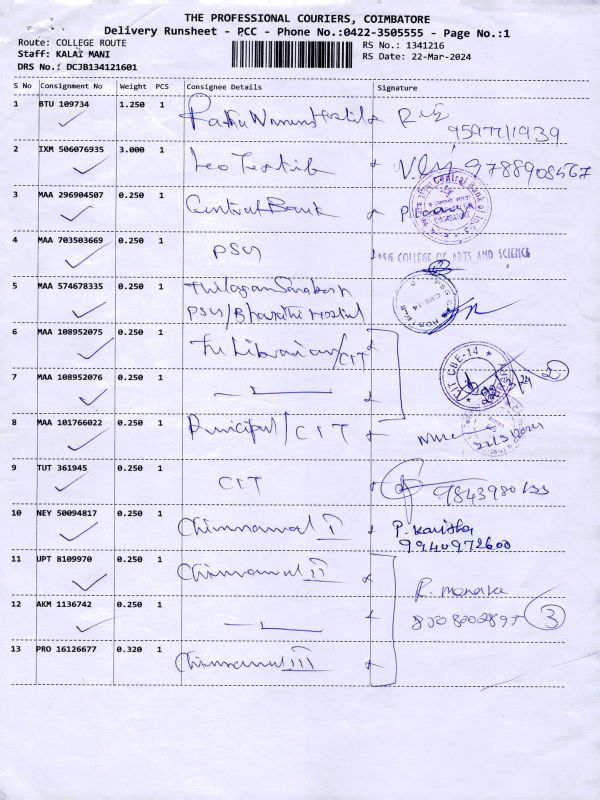 THE PROFESSIONAL COURIERS, COIMBATORE
Delivery Runsheet - PCC - Phone No.:0422-3505555 - Page No.:1
Route: COLLEGE ROUTE
RS No.: 1341216
Staff: KALAI MANI
RS Date: 22-Mar-2024
DRS No.: DCJB134121601
S No Consignment No Weight PCS Consignee Details Signature
1 BTU 109734 1.250 1
2 IXM 506076935 3.000 1 9788908567
3 MAA 296904507 0.250 1 Central Bank
4 MAA 703503669 0.250 1 PSG
PSG COLLEGE OF ARTS AND SCIENCE
5 MAA 574678335 0.250 1
PSG/Bharathi Hostel
6 MAA 108952075 0.250 1 The Librarian/CIT
CIT CBE-14
2
7 MAA 108952076 0.250 1
8 MAA 101766022 0.250 1 Principal/CIT
22/3/2024
9 TUT 361945 0.250 1 CIT
10 NEY 50094817 0.250 1 I P. Kavitha
9940972600
11 UPT 8109970 0.250 1 II
12 AKM 1136742 0.250 1 3
13 PRO 16126677 0.320 1 III